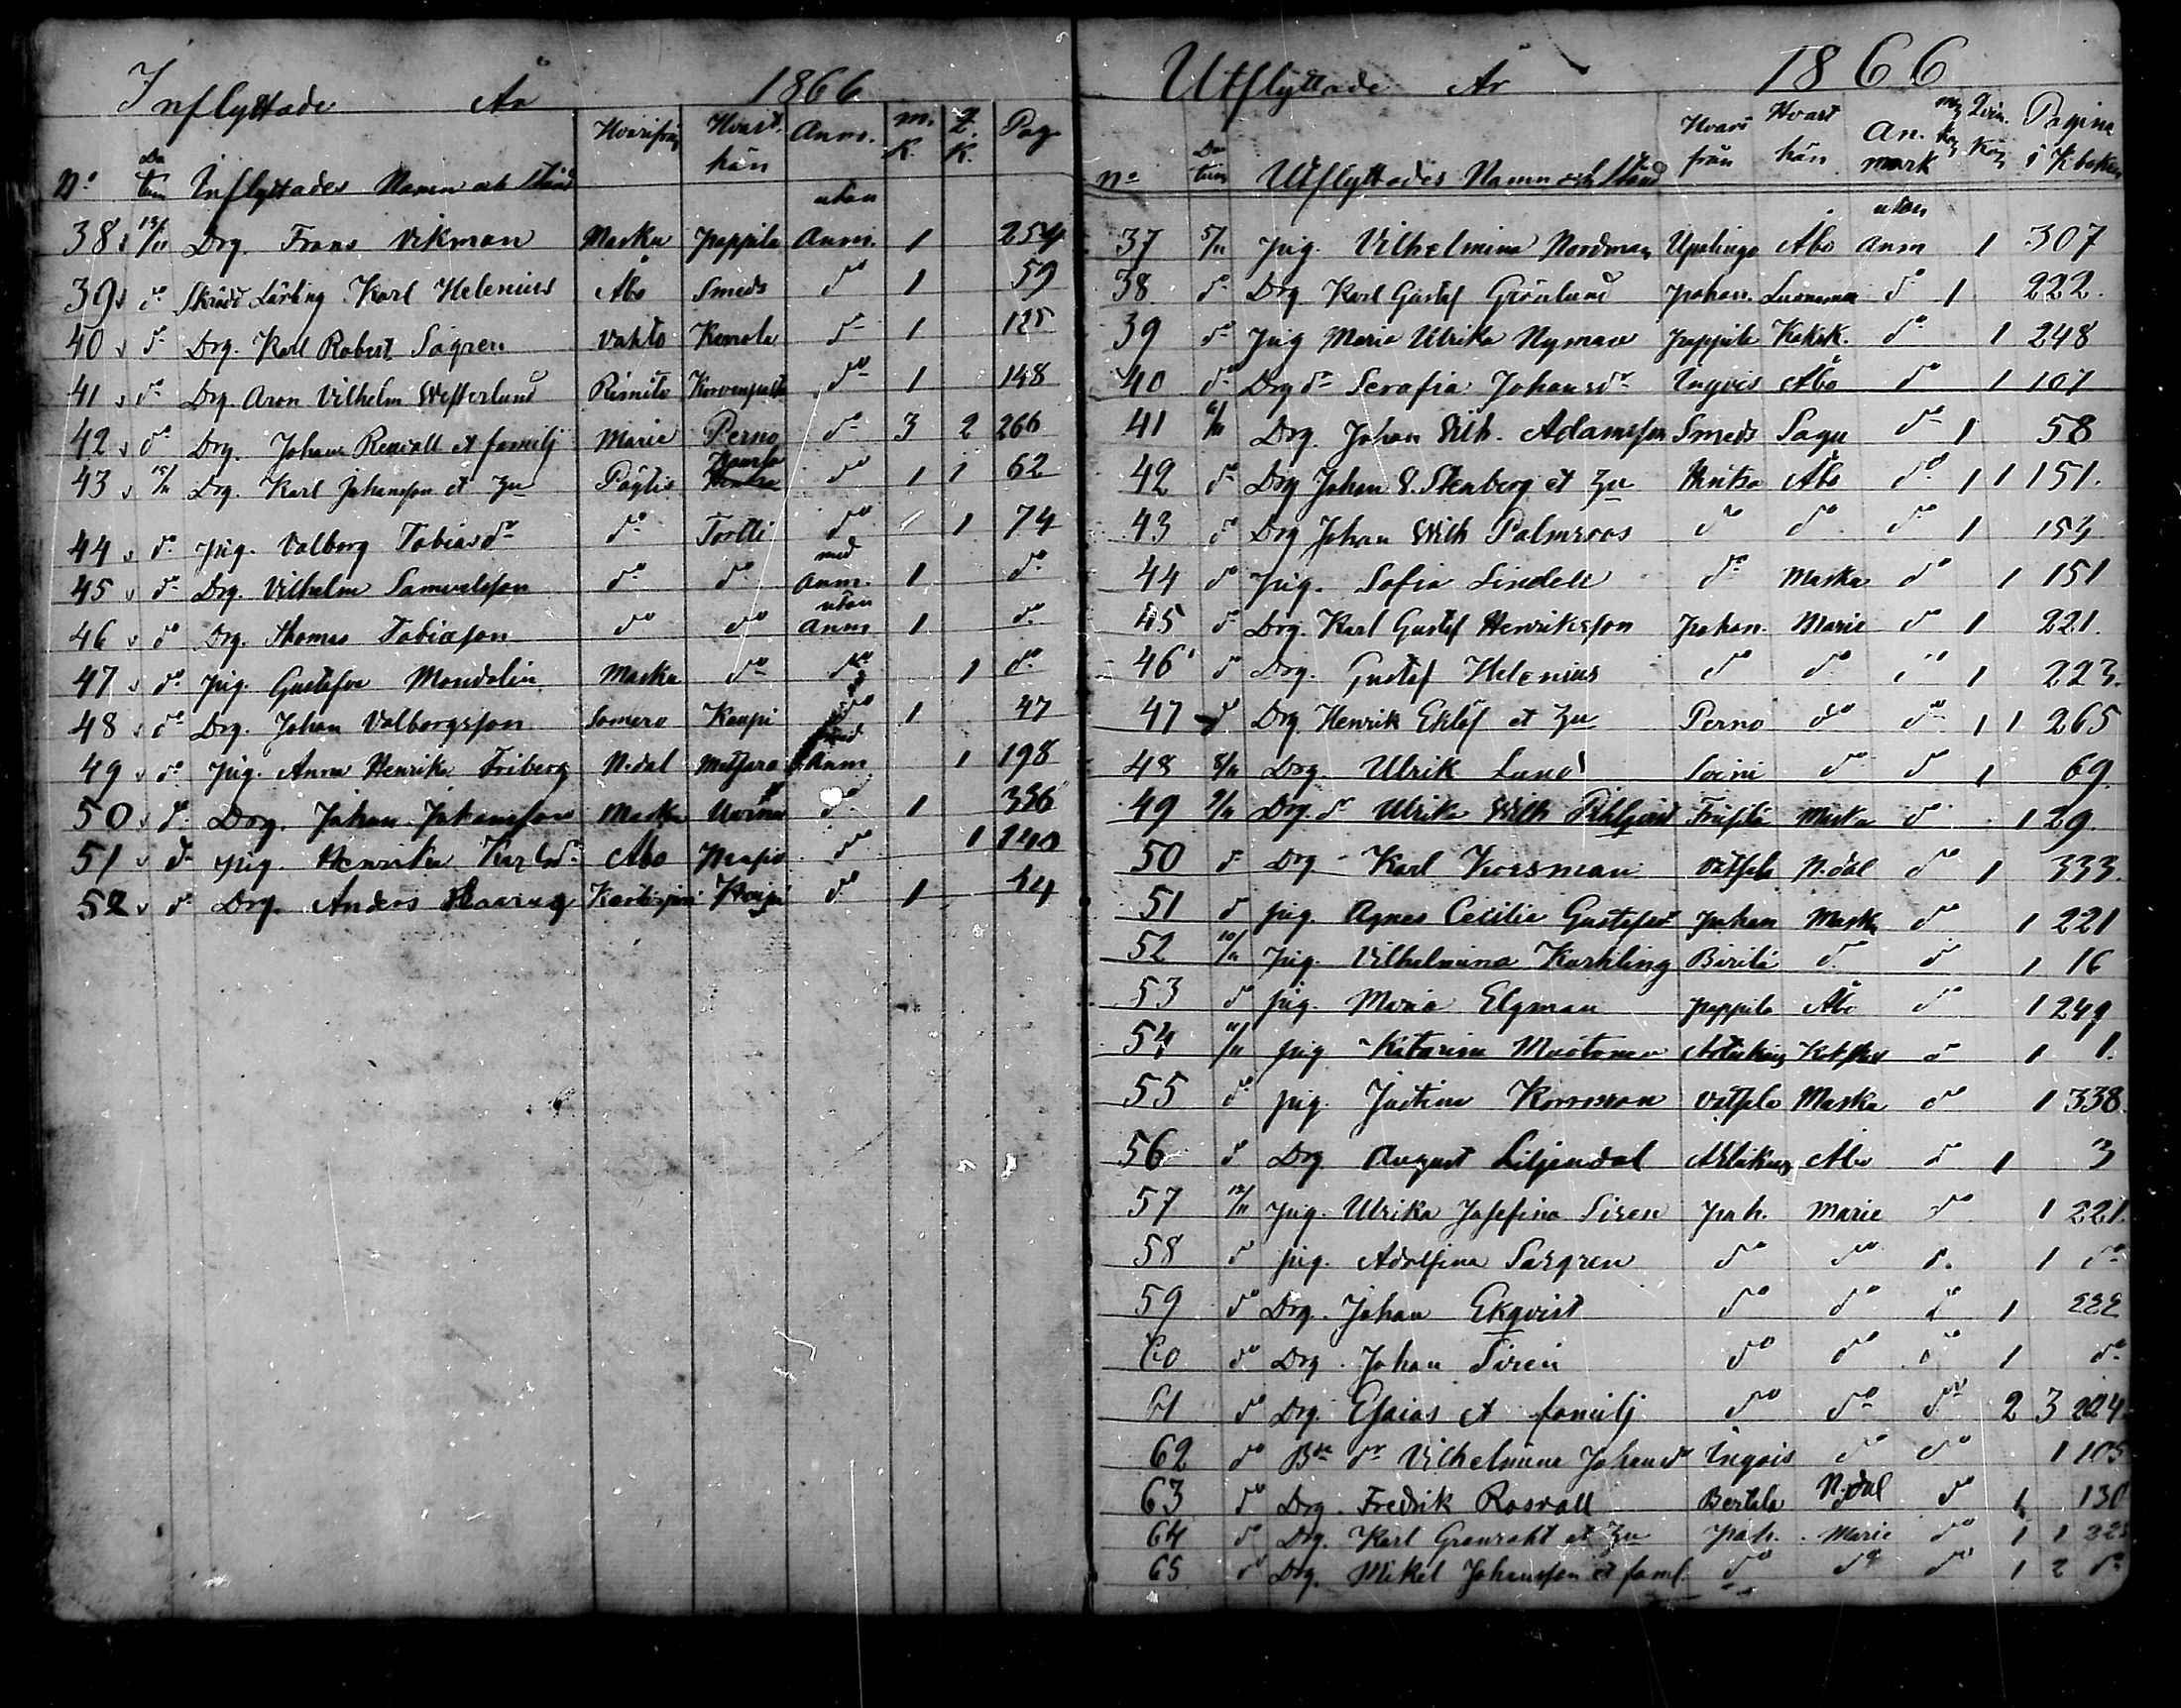 Inflyttade År 1866
No Datum Inflyttades Namn och stånd Hvarifrån Hvart hän Anm. m. K. Q. K. Pag
38 13/11 Drg. Frans Vikman Masku Pappila utan Anm. 1 254
39 do Skrädd Lärling Karl Helenius Åbo Smeds do 1 59
40 do Drg. Karl Robert Sagren Vahto Kerrola do 1 125
41 do Drg. Aron Vilhelm Westerlund Rimito do 1 148
42 do Drg. Johan Renvall et familj Marie Perno do 3 2 266
43 15/11 Drg. Karl Johansson et Zu Pöytis do 1 1 62
44 do Pig. Valborg Tobiasdr do Tortti do 1 74
45 do Drg. Vilhelm Samuelsson do do med Anm. 1 do
46 do Drg. Thomas Tobiasson do do utan Anm 1 do
47 do Pig. Gustafva Mandelin Masku do do 1 do
48 do Drg. Johan Valborgsson Somero Kaupi do 1 47
49 do Pig. Anna Henrika Friberg N.dal Metsara med Anm 1 198
50 do Drg. Johan Johansson Masku do 1 336
51 do Pig. Henrika Karlsdr Åbo do 1 140
52 do Drg. Anders Kaupi do 1 44
Utflyttade År 1866
No Datum Utflyttades Namn och stånd Hvarifrån Hvart hän Anmark m Kön Qvin. Kön Pagina i K.boken
37 5/11 Pig. Vilhelmina Nordman Upalingo Åbo utan Anm 1 307
38 do Drg Karl Gustaf Grönlund Pahan. do 1 222.
39 do Pig Maria Ulrika Nyman Pappila Kaksk. do 1 248
40 do Drg dr Serafia Johansdr Ingois Åbo do 1 107
41 6/11 Drg. Johan Vilh. Adamsson Smeds Sagu do 1 58
42 do Drg Johan E. Stenberg et Zu Huitra Åbo do 1 1 151.
43 do Drg Johan Vilh Palmroos do do do 1 153
44 do Pig. Sofia Lindell do Masku do 1 151
45 do Drg. Karl Gustaf Henriksson Pahan. Marie do 1 221.
46 do Drg. Gustaf Helenius do do do 1 223.
47 do Drg. Henrik Eklöf et Zu Perno do do 1 1 265
48 8/11 Drg. Ulrik Lund Soini do do 1 69.
49 9/11 Drg. dr Ulrika Vilh Pihlqvist Masku do 1 29.
50 do Drg Karl Korsman Vätsela N.dal do 1 333.
51 do Pig. Agnes Cecilia Gustafsdr Pahan Masku do 1 221
52 10/11 Pig. Vilhelmina Karhling Birila do do 1 16
53 do Pig. Maria Elgman Pappila Åbo do 1 249
54 11/11 Pig Katarina do 1 1.
55 do Pig. Justina Korsman Vätsela Masku do 1 338.
56 do Drg August Liljendal Åbo do 1 3
57 12/11 Pig. Ulrika Josefina Siren Pah. Marie do 1 221.
58 do Pig. Adolfina Sargren do do do 1 do
59 do Drg. Johan Ekqvist do do do 1 222
60 do Drg. Johan Siren do do do 1 do
61 do Drg. Esaias et familj do do do 2 3 224
62 do dr Vilhelmina Johansdr Ingois do do 1 105
63 do Drg. Fredrik Rosvall Bertila N.dal do 1 130
64 do Drg. Karl Granroht et Zu Pah. Marie do 1 1
65 do Drg. Mikel Johansson et famil. do do do 1 2 do